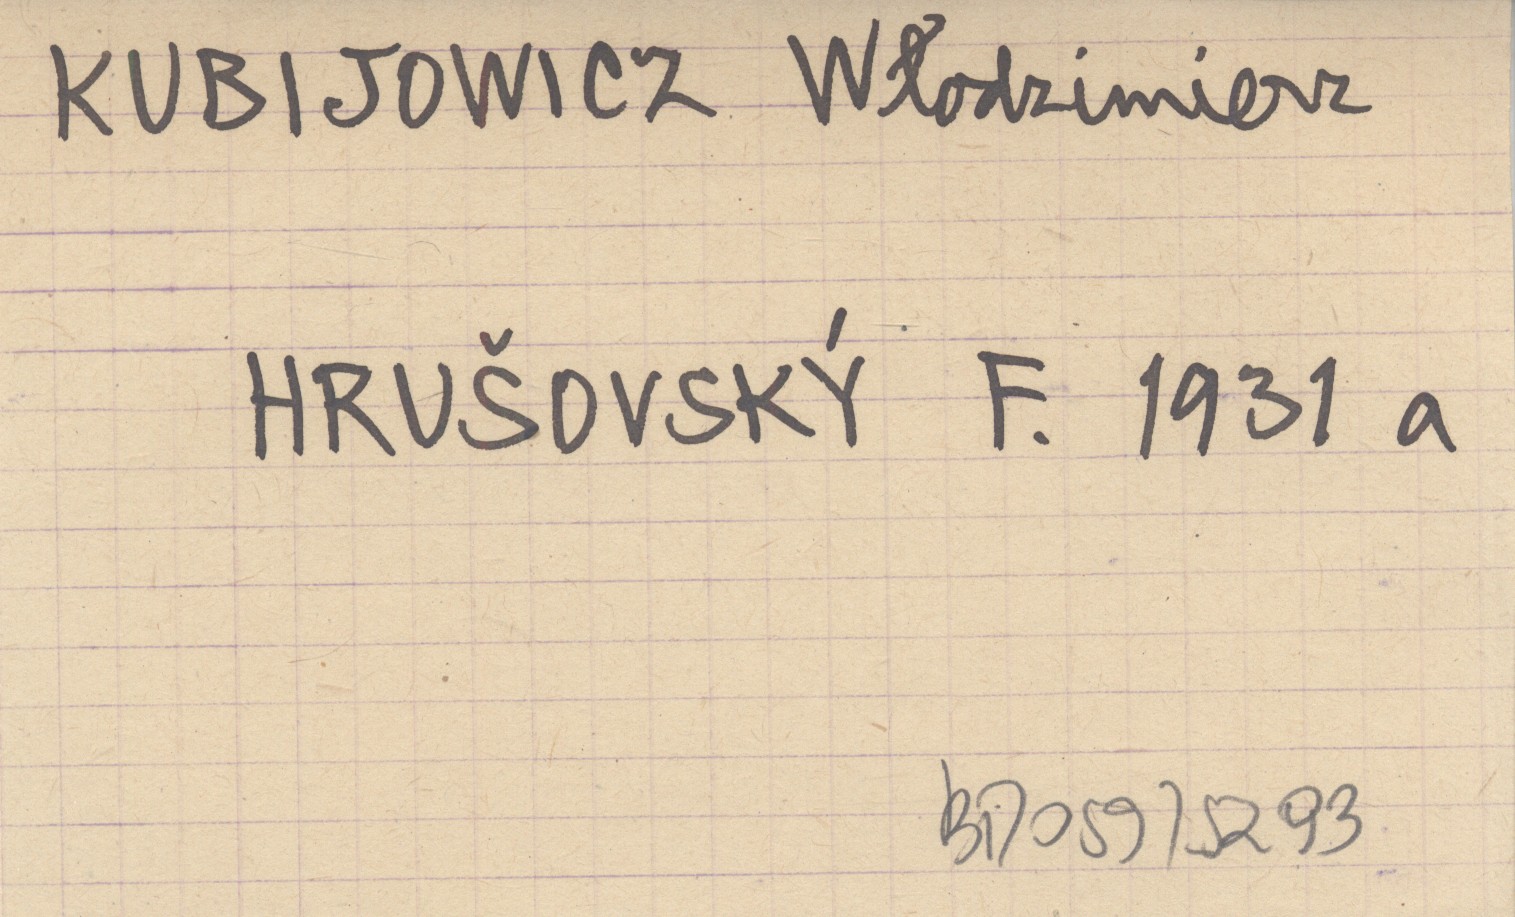 KUBIJOWICZ Włodzimierz
HRUŠOVSKÝ F. 1931 a